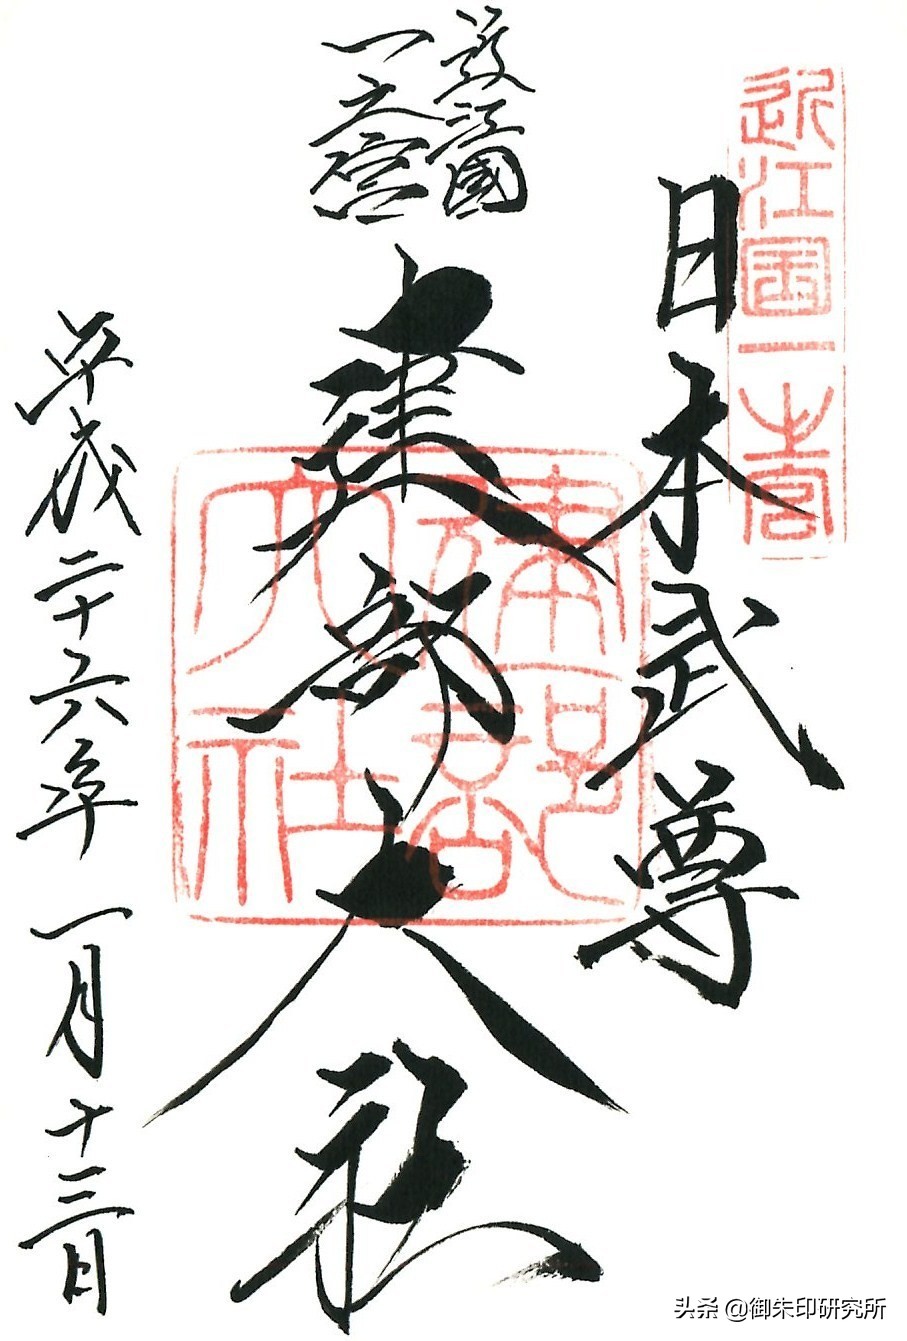 近江国一之宮
日本武尊
近江國
一之宮
建部大社
建部
大社
平成二十六年一月十三日
头条 @御朱印研究所